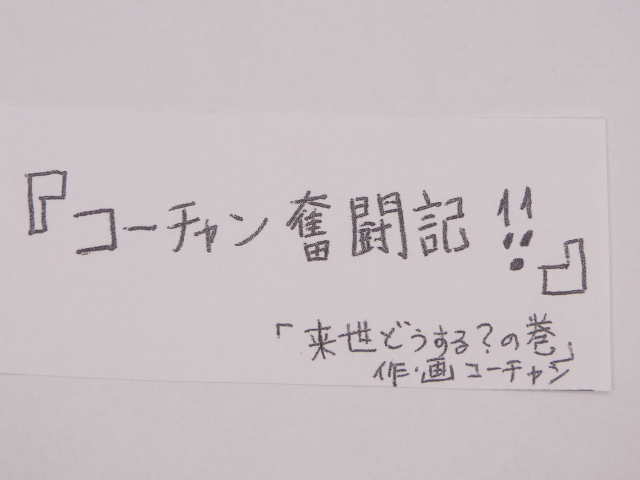 『コーチャン奮闘記!!』
「来世どうする?の巻」
作・画 コーチャン